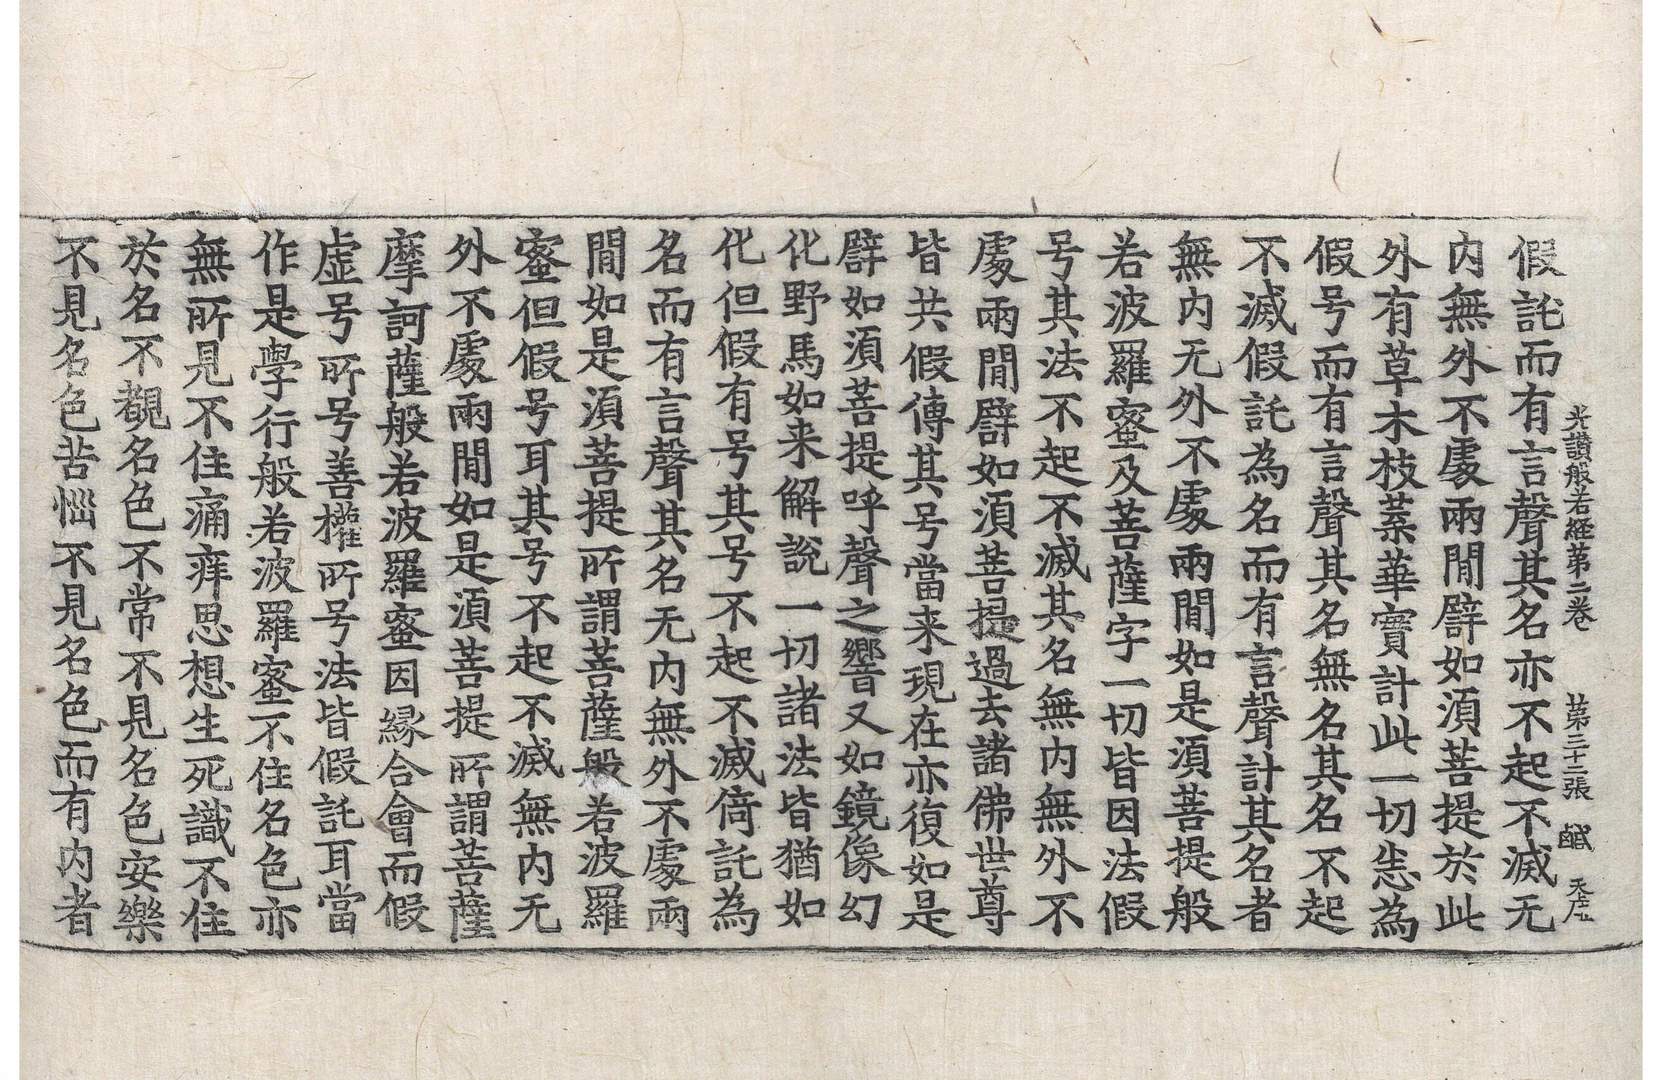 光讚般若經第二卷 第三十二張 鹹 天
假託而有言聲其名亦不起不滅无
内無外不處兩閒譬如須菩提於此
外有草木枝葉華實計此一切悉為
假号而有言聲其名無名其名不起
不滅假託為名而有言聲計其名者
無内无外不處兩閒如是須菩提般
若波羅蜜及菩薩字一切皆因法假
号其法不起不滅其名無内無外不
處兩閒譬如須菩提過去諸佛世尊
皆共假傳其号當来現在亦復如是
譬如須菩提呼聲之響又如鏡像幻
化野馬如来解說一切諸法皆猶如
化但假有号其号不起不滅倚託為
名而有言聲其名无内無外不處兩
閒如是須菩提所謂菩薩般若波羅
蜜但假号耳其号不起不滅無内无
外不處兩閒如是須菩提所謂菩薩
摩訶薩般若波羅蜜因縁合會而假
虛号所号善權所号法皆假託耳當
作是學行般若波羅蜜不住名色亦
無所見不住痛痒思想生死識不住
於名不觀名色不常不見名色安樂
不見名色苦惱不見名色而有内者